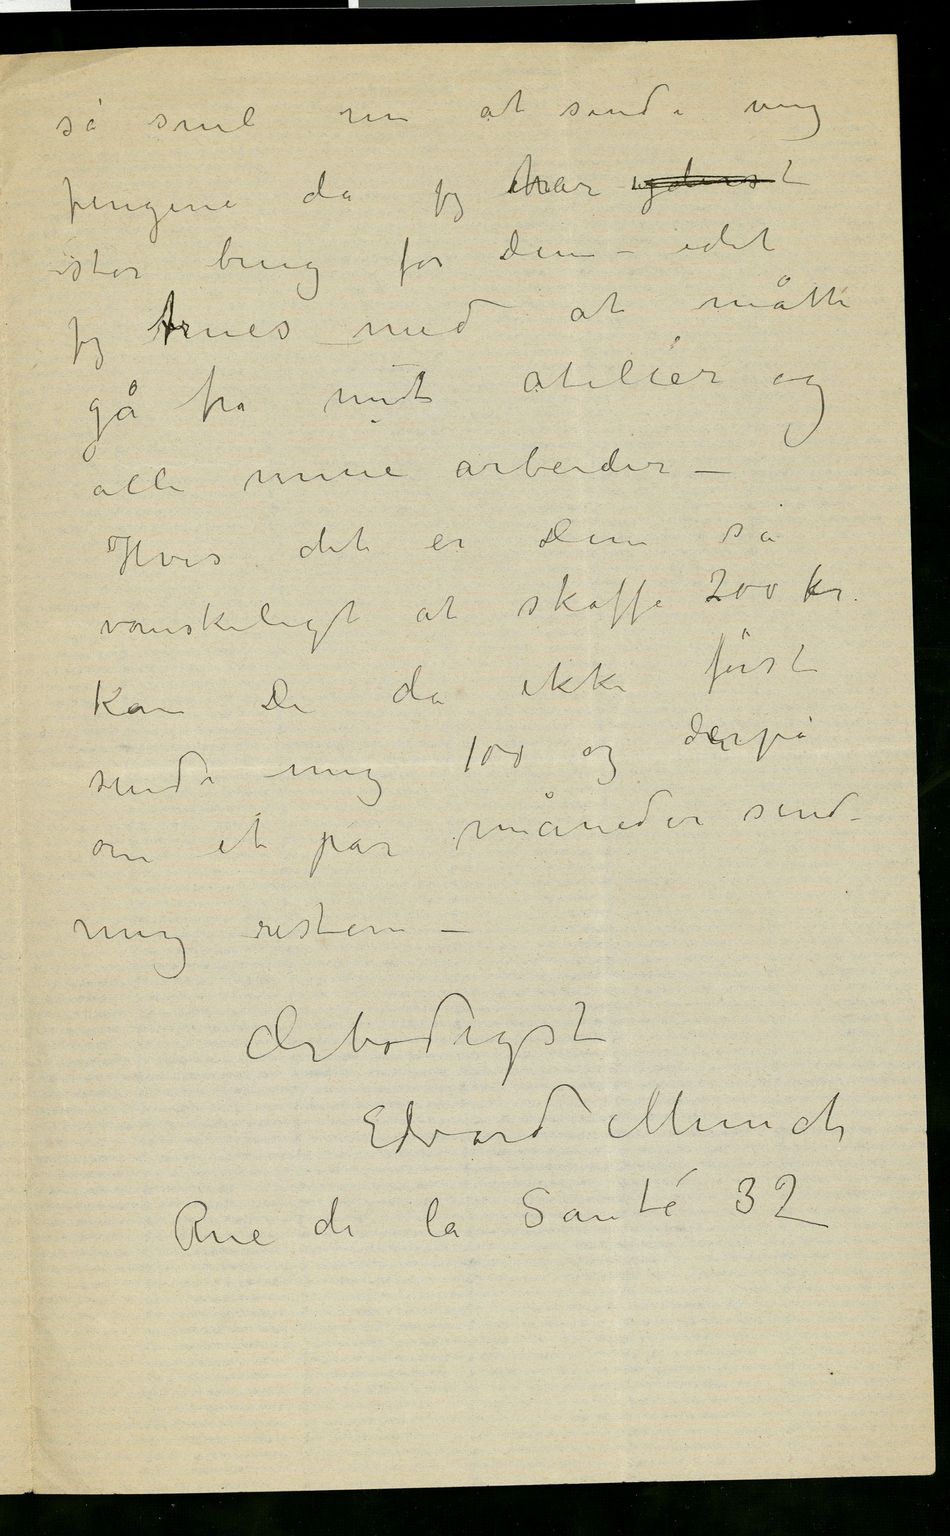 så snil nu at sende mig
pengene da jeg har yderst
stor brug for dem – idet
jeg trues med at måtte
gå fra mit atelier og
alle mine arbeider –
Hvis det er Dem så
vanskeligt at skaffe 200 kr.
kan De da ikke först
sende mig 100 og derpå
om et par måneder sende
mig resten –
Ærbodigst
Edvard Munch
Rue de la Santé 32